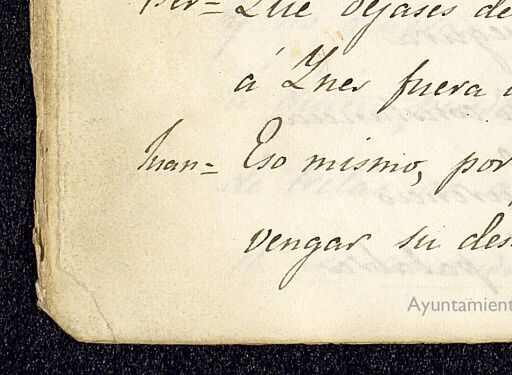 Que dejases de
á Ynes fuera
Juan= Eso mismo, por
vengar su des
Ayuntamient